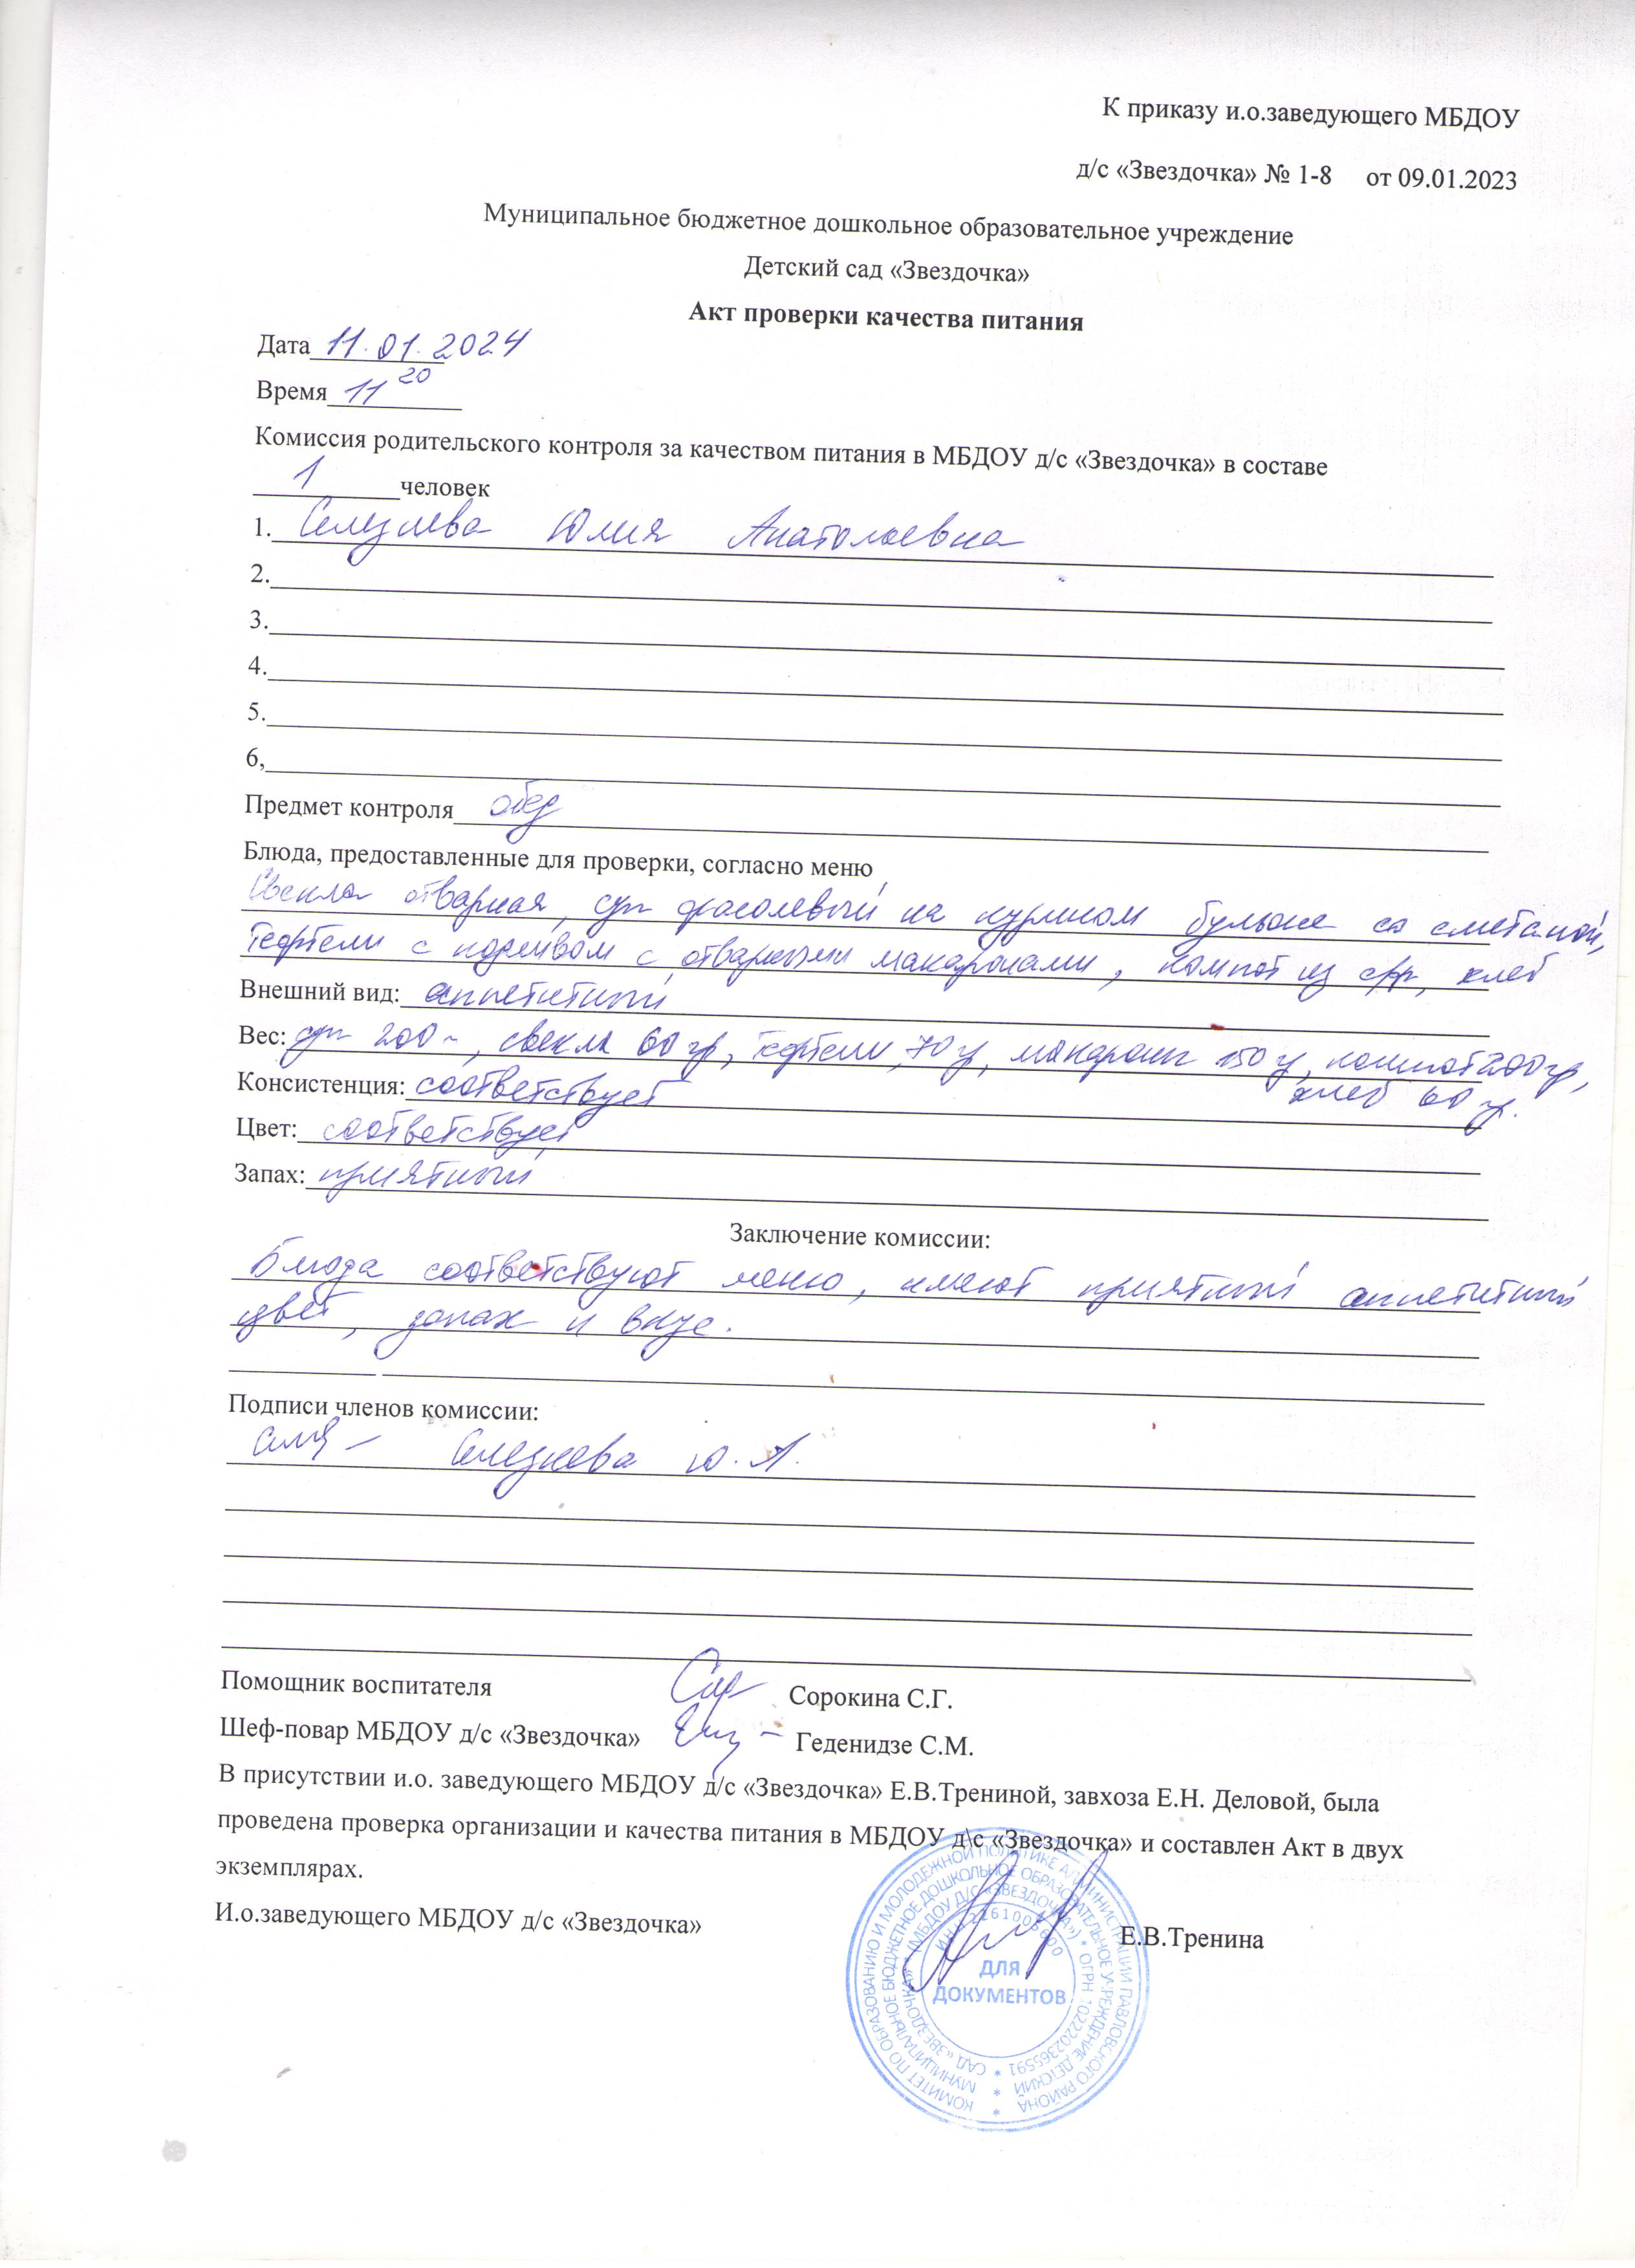 К приказу и.о.заведующего МБДОУ
д/с «Звездочка» № 1-8 от 09.01.2023
Муниципальное бюджетное дошкольное образовательное учреждение
Детский сад «Звездочка»
Акт проверки качества питания
Дата 11.01.2024
Время 11 20
Комиссия родительского контроля за качеством питания в МБДОУ д/с «Звездочка» в составе
1 человек
1. Селезнева Юлия Анатольевна
2.
3.
4.
5.
6,
Предмет контроля обед
Блюда, предоставленные для проверки, согласно меню
Свекла отварная, суп фасолевый на курином бульоне со сметаной,
Тефтели с подливом с отварными макаронами, компот из с/фр, хлеб
Внешний вид: аппетитный
Вес: суп 200 г, свекла 60 гр, тефтели 70 гр, макароны 150 гр, компот 200 гр,
хлеб 60 гр.
Консистенция: соответствует
Цвет: соответствует
Запах: приятный
Заключение комиссии:
Блюда соответствуют меню, имеют приятный аппетитный
цвет, запах и вкус.
Подписи членов комиссии:
Селезнева Ю.А.
Помощник воспитателя Сорокина С.Г.
Шеф-повар МБДОУ д/с «Звездочка» Геденидзе С.М.
В присутствии и.о. заведующего МБДОУ д/с «Звездочка» Е.В.Трениной, завхоза Е.Н. Деловой, была
проведена проверка организации и качества питания в МБДОУ д\с «Звездочка» и составлен Акт в двух
экземплярах.
И.о.заведующего МБДОУ д/с «Звездочка» Е.В.Тренина
КОМИТЕТ ПО ОБРАЗОВАНИЮ И МОЛОДЕЖНОЙ ПОЛИТИКЕ АДМИНИСТРАЦИИ ПАВЛОВСКОГО РАЙОНА *
МУНИЦИПАЛЬНОЕ БЮДЖЕТНОЕ ДОШКОЛЬНОЕ ОБРАЗОВАТЕЛЬНОЕ УЧРЕЖДЕНИЕ ДЕТСКИЙ *
САД «ЗВЕЗДОЧКА» (МБДОУ Д/С «ЗВЕЗДОЧКА») * ОГРН 1022202365591 *
ДЛЯ
ДОКУМЕНТОВ